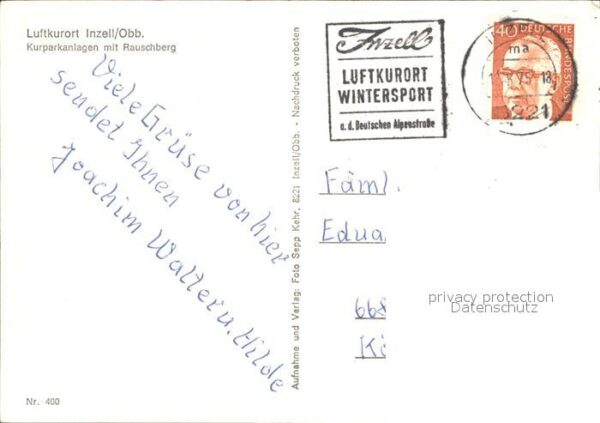 Luftkurort Inzell/Obb.
Kurparkanlagen mit Rauschberg
Viele Grüse von hier
sendet Ihnen
Joachim Walter u. Hilde
Nr. 400
Aufnahme und Verlag: Foto Sepp Kehr, 8221 Inzell/Obb. - Nachdruck verboten
Inzell
LUFTKURORT
WINTERSPORT
a. d. Deutschen Alpenstraße
40
DEUTSCHE
BUNDESPOST
ma
8221
Fäml.
Edua
668
Kö
privacy protection
Datenschutz